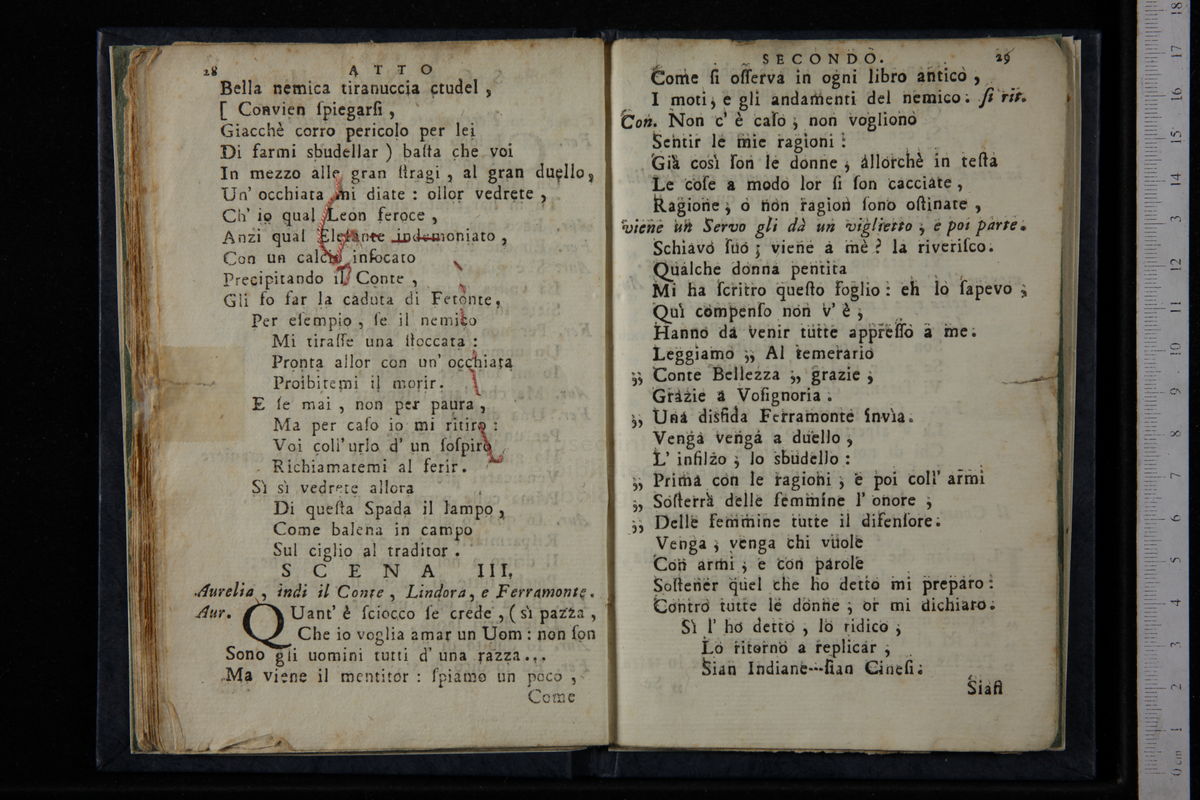 28 ATTO
Bella nemica tiranuccia ctudel ,
[ Convien ſpiegarſi ,
Giacchè corro pericolo per lei
Di farmi sbudellar ) baſta che voi
In mezzo alle gran ſtragi , al gran duello,
Un' occhiata mi diate : ollor vedrete ,
Ch' io qual Leon feroce ,
Anzi qual Elefante indemoniato ,
Con un calcio infocato
Precipitando il Conte ,
Gli fo far la caduta di Fetonte.
Per eſempio , ſe il nemico
Mi tiraſſe una ſtoccata :
Pronta allor con un' occhiata
Proibitemi il morir.
E ſe mai , non per paura ,
Ma per caſo io mi ritiro :
Voi coll' urlo d' un ſoſpiro
Richiamatemi al ferir.
Sì sì vedrete allora
Di queſta Spada il lampo ,
Come balena in campo
Sul ciglio al traditor .
SCENA III.
Aurelia , indi il Conte , Lindora, e Ferramonte.
Aur. QUant' è ſciocco ſe crede , ( sì pazza ,
Che io voglia amar un Uom : non ſon
Sono gli uomini tutti d' una razza...
Ma viene il mentitor : ſpiamo un poco ,
Come
SECONDO. 29
Come ſi oſſerva in ogni libro antico ,
I moti, e gli andamenti del nemico. ſi rit.
Con. Non c' è caſo , non vogliono
Sentir le mie ragioni :
Già così ſon le donne , allorchè in teſta
Le coſe a modo lor ſi ſon cacciate ,
Ragione , o non ragion ſono oſtinate ,
viene un Servo gli dà un viglietto , e poi parte.
Schiavo ſuo ; viene a mè ? la riveriſco.
Qualche donna pentita
Mi ha ſcritro queſto foglio : eh lo ſapevo ;
Quì compenſo non v' è ,
Hanno da venir tutte appreſſo a me.
Leggiamo ,, Al temerario
,, Conte Bellezza ,, grazie ,
Grazie a Voſignoria .
,, Una disfida Ferramonte invia.
Venga venga a duello ,
L' infilzo , lo sbudello :
,, Prima con le ragioni , e poi coll' armi
,, Soſterrà delle femmine l' onore ,
,, Delle femmine tutte il difenſore.
Venga , venga chi vuole
Con armi , e con parole
Soſtener quel che ho detto mi preparo :
Contro tutte le donne , or mi dichiaro.
Sì l' ho detto , lo ridico ,
Lo ritorno a replicar ,
Sian Indiane---ſian Cineſi.
Sian